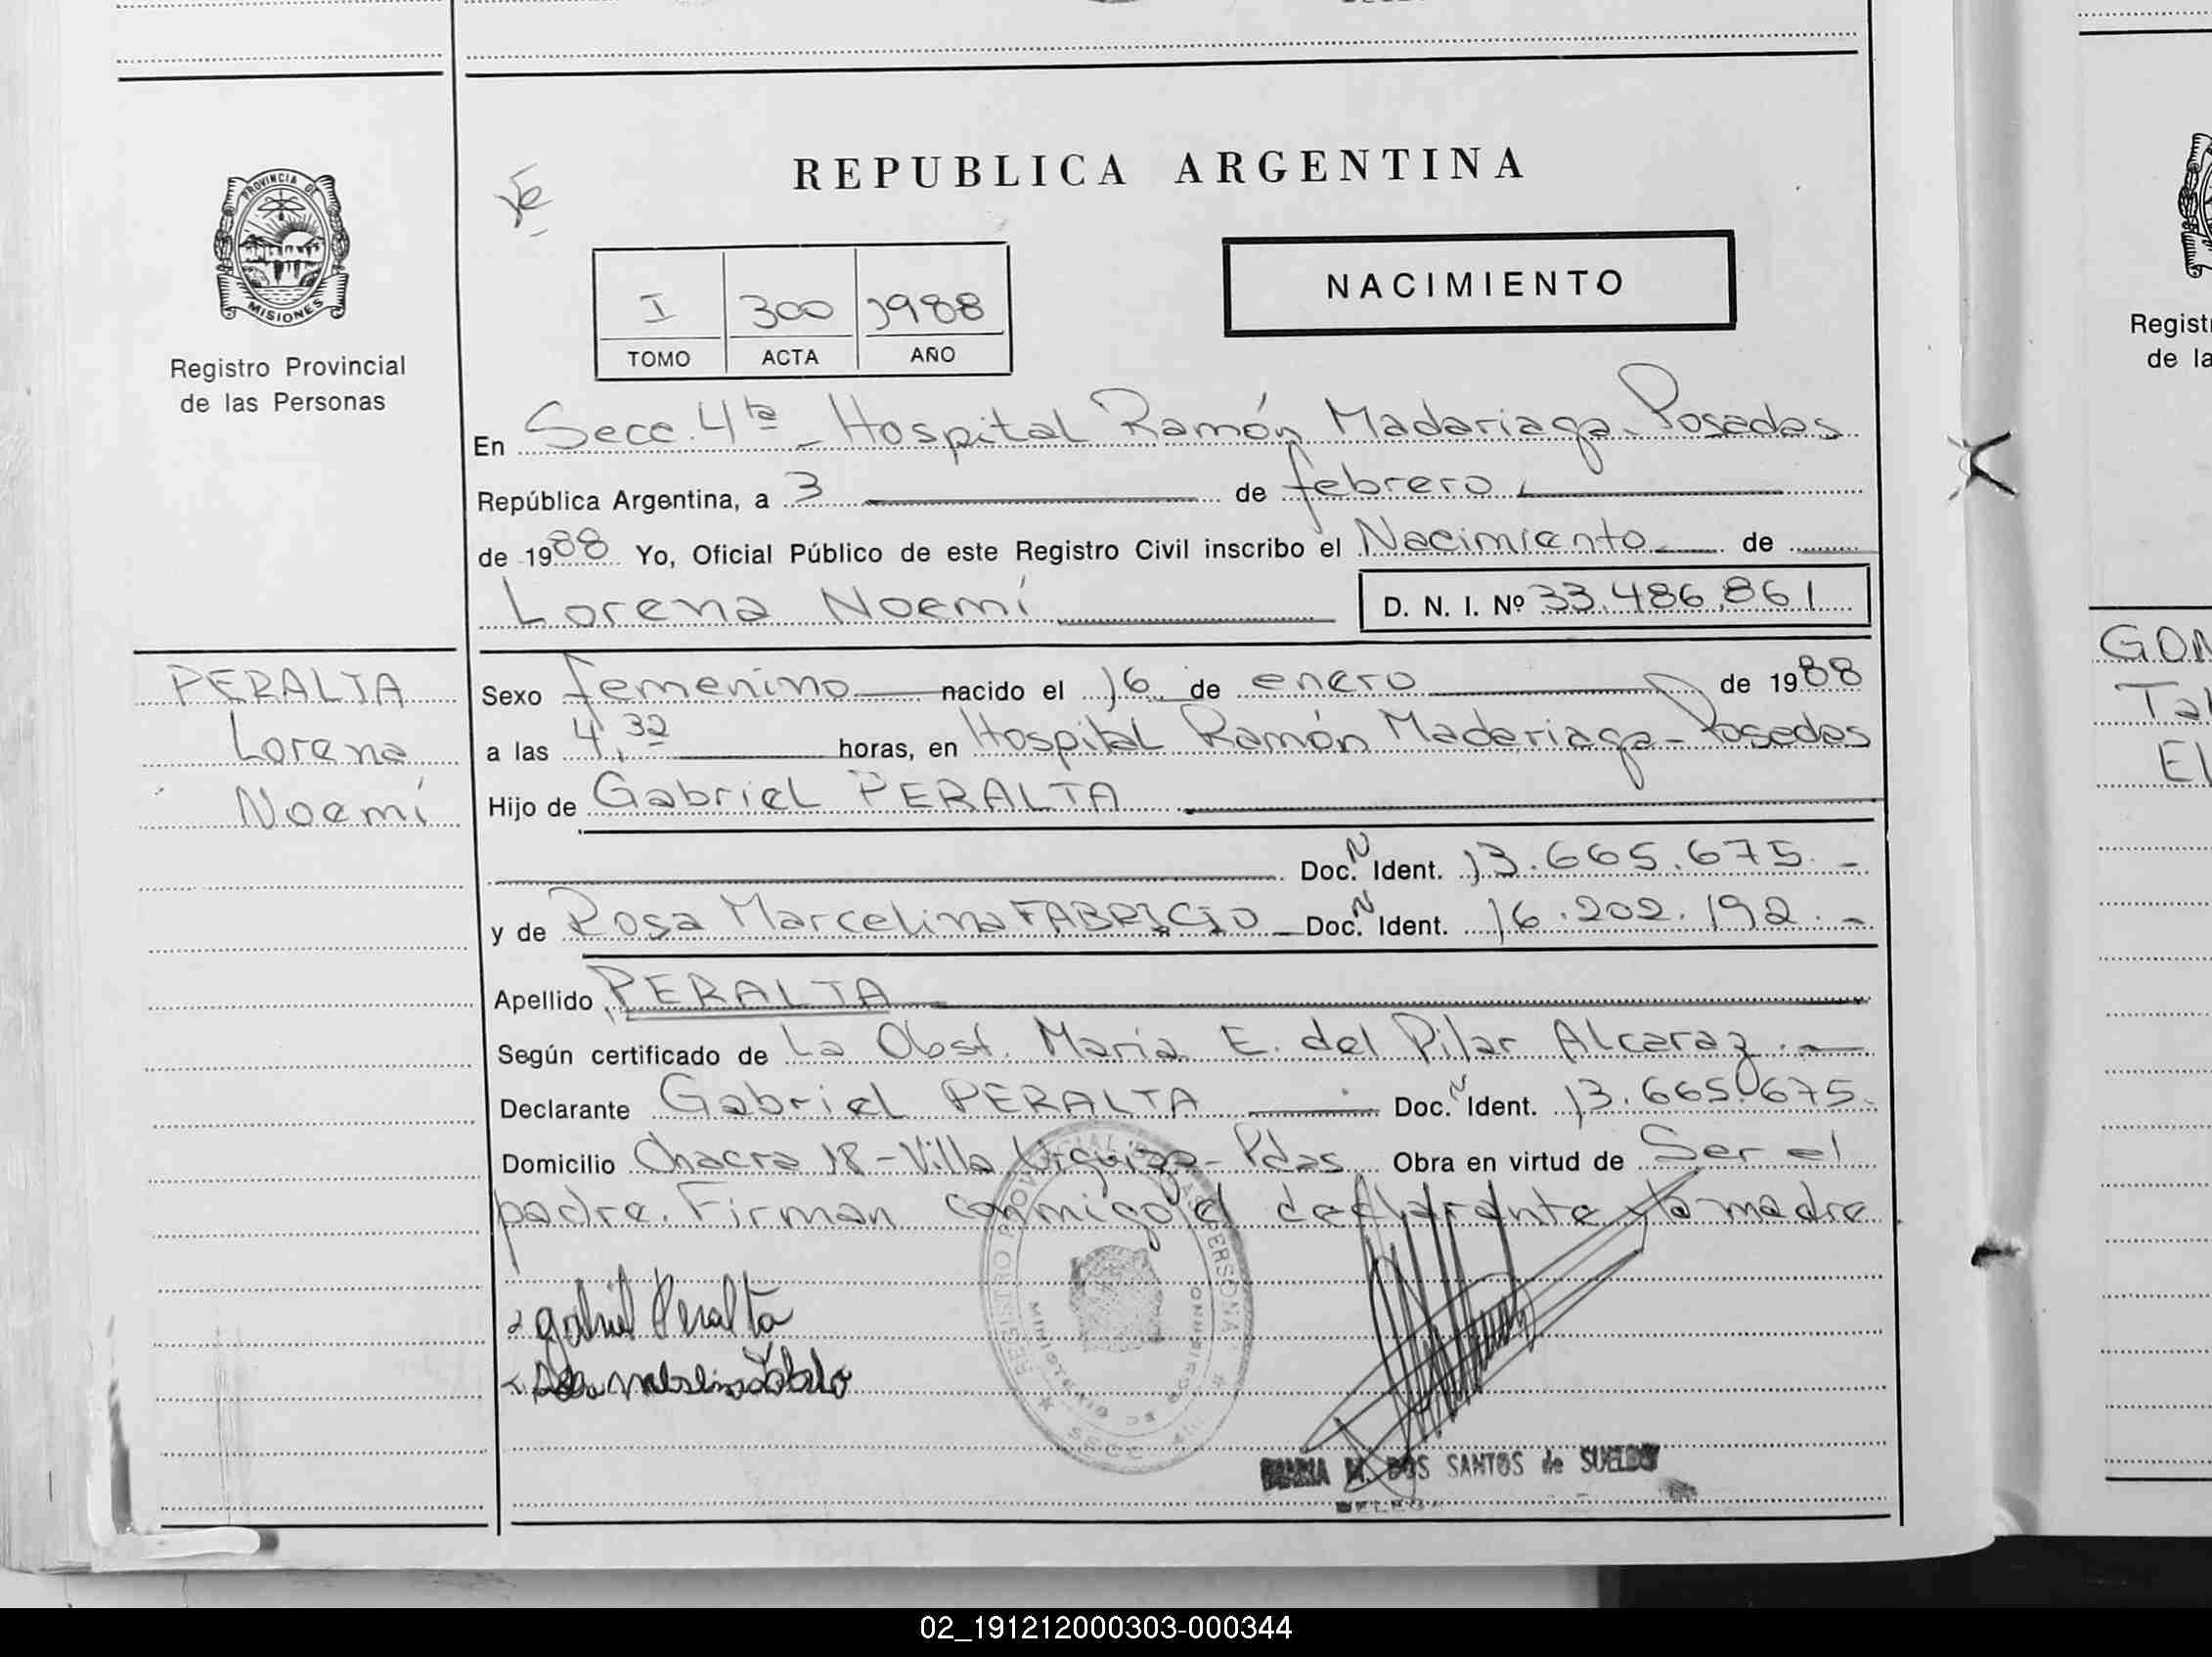 PROVINCIA DE
MISIONES
Registro Provincial
de las Personas
REPUBLICA ARGENTINA
NACIMIENTO
I 300 1988
TOMO ACTA AÑO
En Secc. 4ta - Hospital Ramón Madariaga - Posadas
República Argentina, a 3 de febrero
de 1988 Yo, Oficial Público de este Registro Civil inscribo el Nacimiento de
Lorena Noemí D. N. I. Nº 33.486.861
PERALTA
Lorena
Noemí
Sexo femenino nacido el 16 de enero de 1988
a las 4,32 horas, en Hospital Ramón Madariaga - Posadas
Hijo de Gabriel PERALTA
Doc. N Ident. 13.665.675.-
y de Rosa Marcelina FABRICIO - Doc. N Ident. 16.202.192.-
Apellido PERALTA
Según certificado de La Obst. María E. del Pilar Alcaraz.-
Declarante Gabriel PERALTA Doc. N Ident. 13.665.675.
Domicilio Chacra 18 - Villa Urquiza - Pdas Obra en virtud de Ser el
padre. Firman conmigo el declarante y la madre
Gabriel Peralta
REGISTRO PROVINCIAL DE LAS PERSONAS
MINISTERIO DE GOBIERNO
SECC. 4ta
MARIA M. DOS SANTOS de SUELDO
Regist
de la
GON
Tal
El
02_191212000303-000344